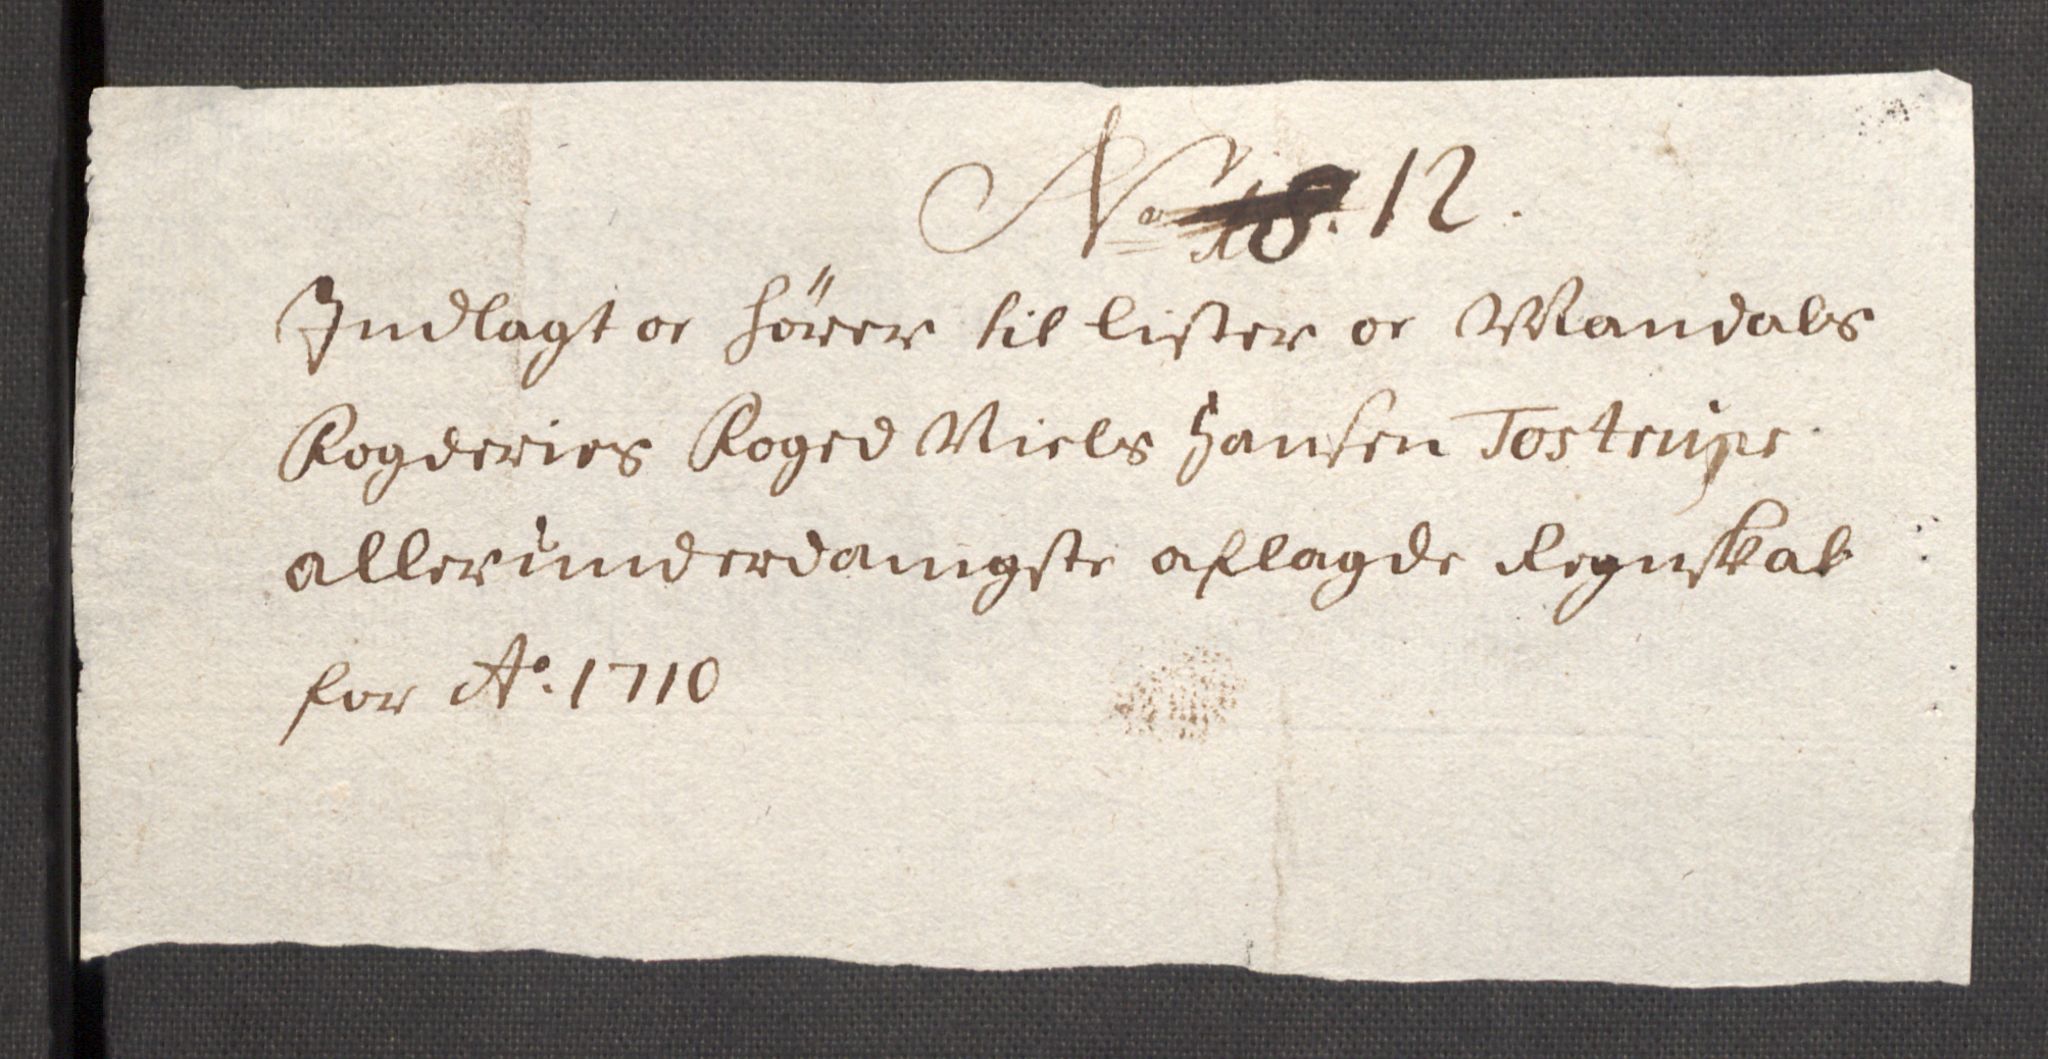 No 18. 12.
Indlagt oc hörer til Lister oc Mandals
Fogderies Foged Niels Hansen Tostrups
allerunderdanigste aflagde Regnskab
for Ao. 1710